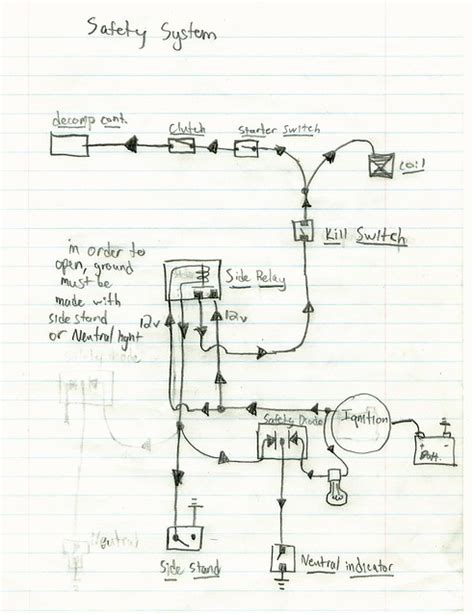 Safety System
decomp cont.
Clutch
Starter Switch
Coil
Kill Switch
in order to
open, ground
must be
made with
side stand
or Neutral light
Side Relay
12v
12v
Safety Diode
Ignition
+ -
Batt.
Neutral
Side Stand
Neutral indicator